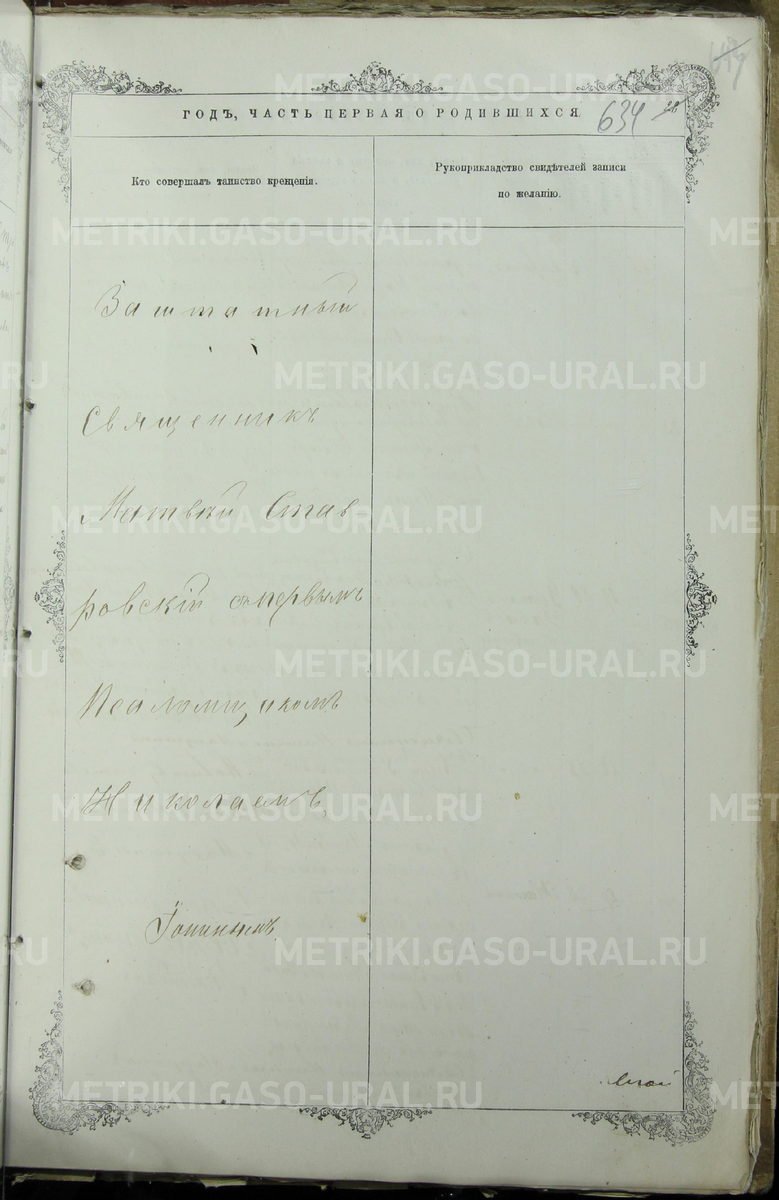 634
ГОДЪ, ЧАСТЬ ПЕРВАЯ О РОДИВШИХСЯ
Кто совершалъ таинство крещенія.
Рукоприкладство свидѣтелей записи
по желанію.
Заштатный
Священникъ
Матвѣй Став
ровскій съ первымъ
Псаломщикомъ
Николаемъ
Іонинымъ
METRIKI.GASO-URAL.RU